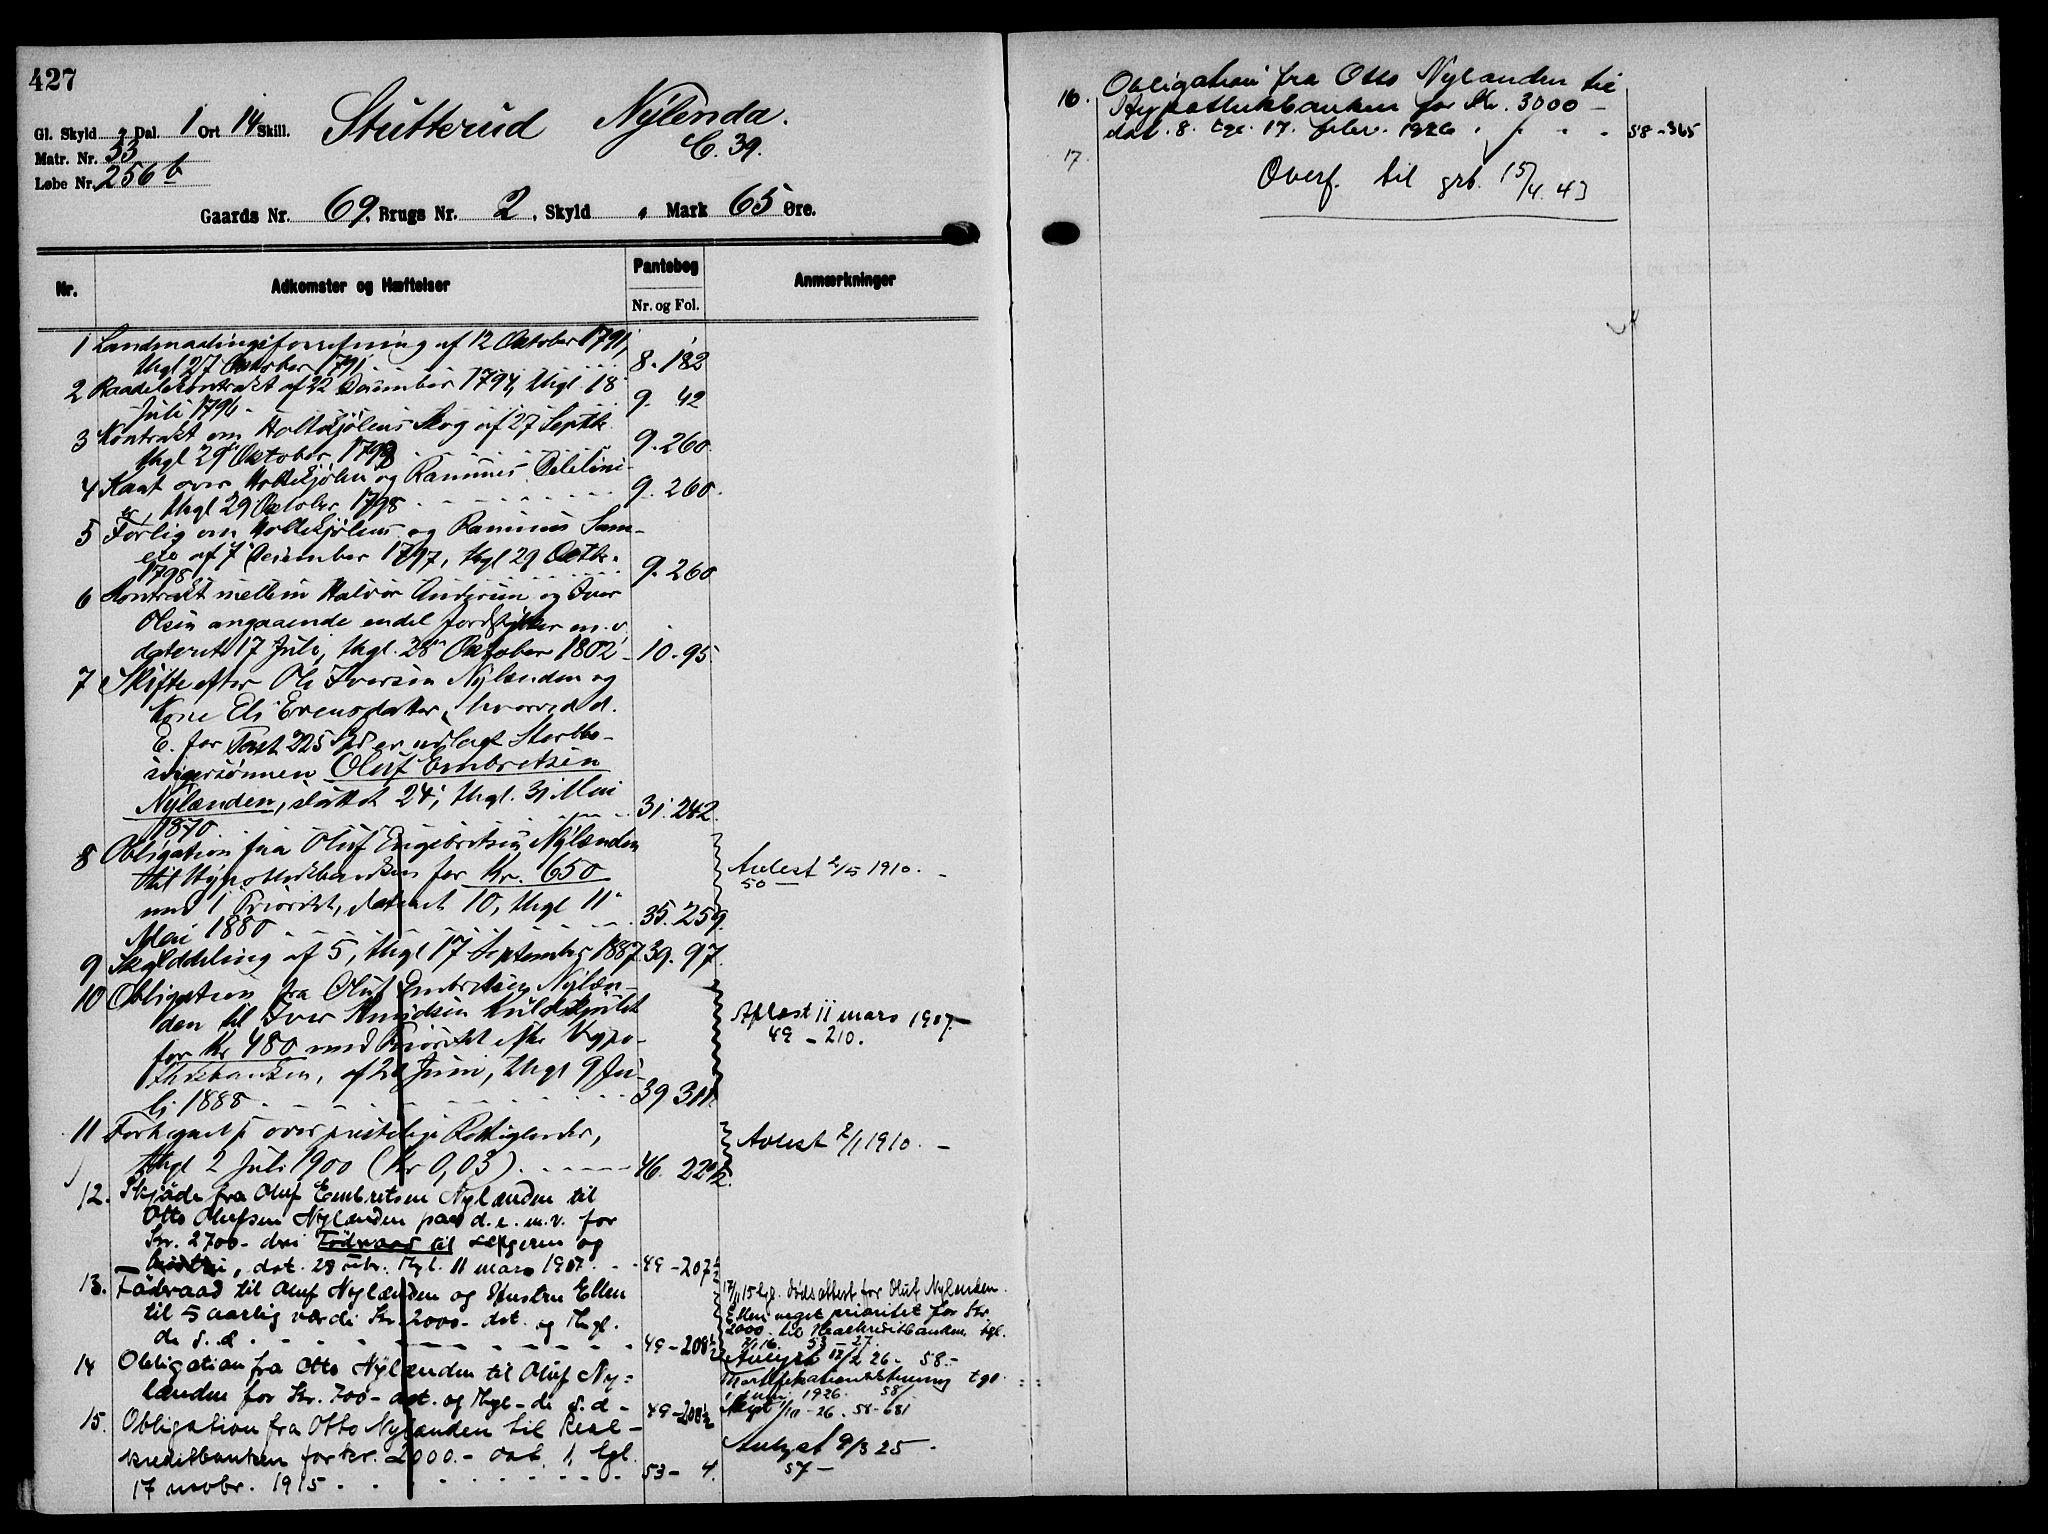 427
Gl. Skyld 2 Dal. 1 Ort 14 Skill. Stutterud Nylenda.
Matr. Nr. 33 C. 39.
Løbe Nr. 256 b
Gaards Nr. 69, Brugs Nr. 2, Skyld " Mark 65 Øre.
Nr. Adkomster og Hæftelser Pantebog Anmærkninger
Nr. og Fol.
1 Landmaalingsforretning af 12 Oktober 1791,
thgl 27 Oktober 1791 8. 182
2 Raadelskontrakt af 22 December 1794, thgl. 18
Juli 1796 9. 42
3 Kontrakt om Holtekjølens Skog af 27 Septbr.
thgl 29 Oktober 1798 9. 260
4 Kart over Holtekjølen og Rammes Delelini-
er, thgl 29 Oktober 1798 9. 260
5 Forlig om Holtekjølens og Rammes Sam-
eie af 7 December 1797, thgl 29 Octbr.
1798 9. 260
6 Kontrakt mellem Halvor Andersen og Iver
Olsen angaaende endel Jordstykker m. v.
dateret 17 Juli, thgl. 28 Oktober 1802 10. 95
7 Skifte efter Ole Iversen Nylænden og
Kone Eli Evensdatter, hvorved d.
E. for Taxt 225 Spd er udlagt Stervbo-
svigersønnen Oluf Embretsen
Nylænden, sluttet 24, thgl. 31 Mai
1870. 31. 242.
8 Obligation fra Oluf Engebretsen Nylænden
til Hypothekbanken for Kr. 650
med 1 Prioritet, dateret 10, thgl 11
Mai 1880 35. 259.
Avlest 2/5 1910.
50 —
9 Skylddeling af 5, thgl 17 September 1887 39. 97.
10 Obligation fra Oluf Embretsen Nylæn-
den til Iver Knudsen
for Kr 480 med Prioritet efter Hypo-
thekbanken, af 24 Juni, thgl 9 Ju-
li 1888 39 311.
Aflæst 11 mars 1907.
49 - 210.
11 Fortegnelse over prestelige Rettigheder,
thgl 2 Juli 1900 (Kr 0,03) 46. 229½.
Avlest 2/1 1910. —
12. Skjøde fra Oluf Embretsen Nylænden til
Otto Olufsen Nylænden paa d. e. m. v. for
Kr. 2700 - deri Födraad til selgeren og
hustru, dat. 28 febr. Thgl. 11 mars 1907. 49 - 207½
13. Födraad til Oluf Nylænden og Hustru Ellen
til 5 aarlig værdi Kr. 2000 - dat. og Thgl.
de s. d. 49 - 208½
tgl. dødsattest for Oluf Nylænden.
Ellen veget prioritet for Kr.
2000 - til Realkreditbanken tgl.
53 - 27.
Avlyst 12/2 26 - 58 -
14 Obligation fra Otto Nylænden til Oluf Ny-
lænden for Kr. 700 - dat. og Thgl - de s. d - 49 - 208½
tgl.
1 juni 1926. 58/
1/10 - 26. 58 - 681
15. Obligation fra Otto Nylænden til Real-
kreditbanken for kr. 2000. - dat. 1, tgl.
17 novbr. 1915 53 - 4.
Avlyst 9/3 25 -
57 -
16. Obligation fra Otto Nylænden til
Hypothekbanken for Kr. 3000 -
dat. 8. tgl. 17. febr. 1926 58 - 365
17. Overf. til grb. 15/4. 43